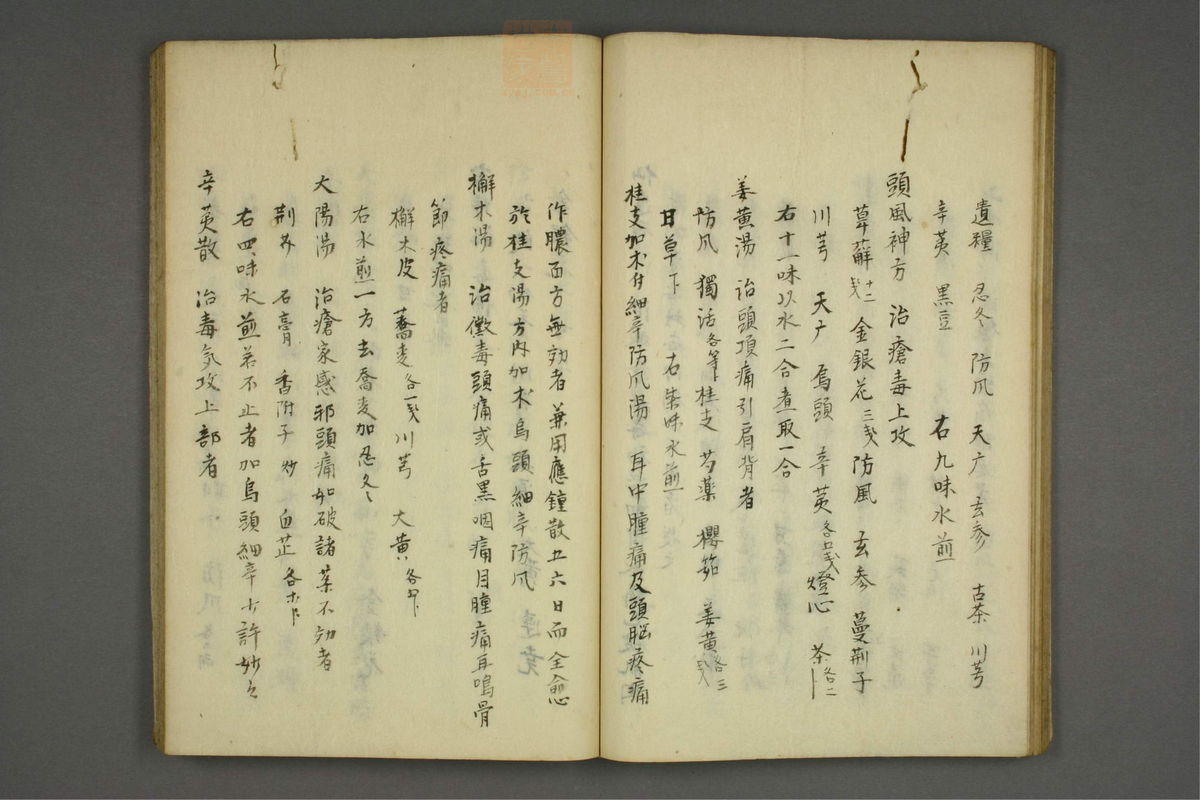 遺糧 忍冬 防风 天广 玄参 古茶 川芎
辛荑 黒豆 右九味水煎
頭風神方 治瘡毒上攻
萆薢十二戔 金銀花三戔 防風 玄参 蔓荆子
川芎 天广 烏頭 辛荑 燈心 茶各二
右十一味以水二合煮取一合
姜黄湯 治頭項痛引肩背者
防风 獨活各等 桂支 芍薬 櫻筎 姜黄
甘草 右柒味水煎
桂支加术付細辛防风湯 耳中腫痛及頭脳疼痛
作膿百方無効者兼用應鐘散五六日而全愈
於桂支湯方内加术烏頭細辛防风
檞木湯 治黴毒頭痛或舌黒咽痛目腫痛耳鳴骨
節疼痛者
檞木皮 蕎麦各一戔 川芎 大黄
右水煎一方去蕎麦加忍冬
大陽湯 治瘡家感邪頭痛如破諸薬不効者
荆芥 石膏 香附子炒 白芷
右四味水煎若不止者加烏頭細辛少許妙々
辛荑散 治毒気攻上部者